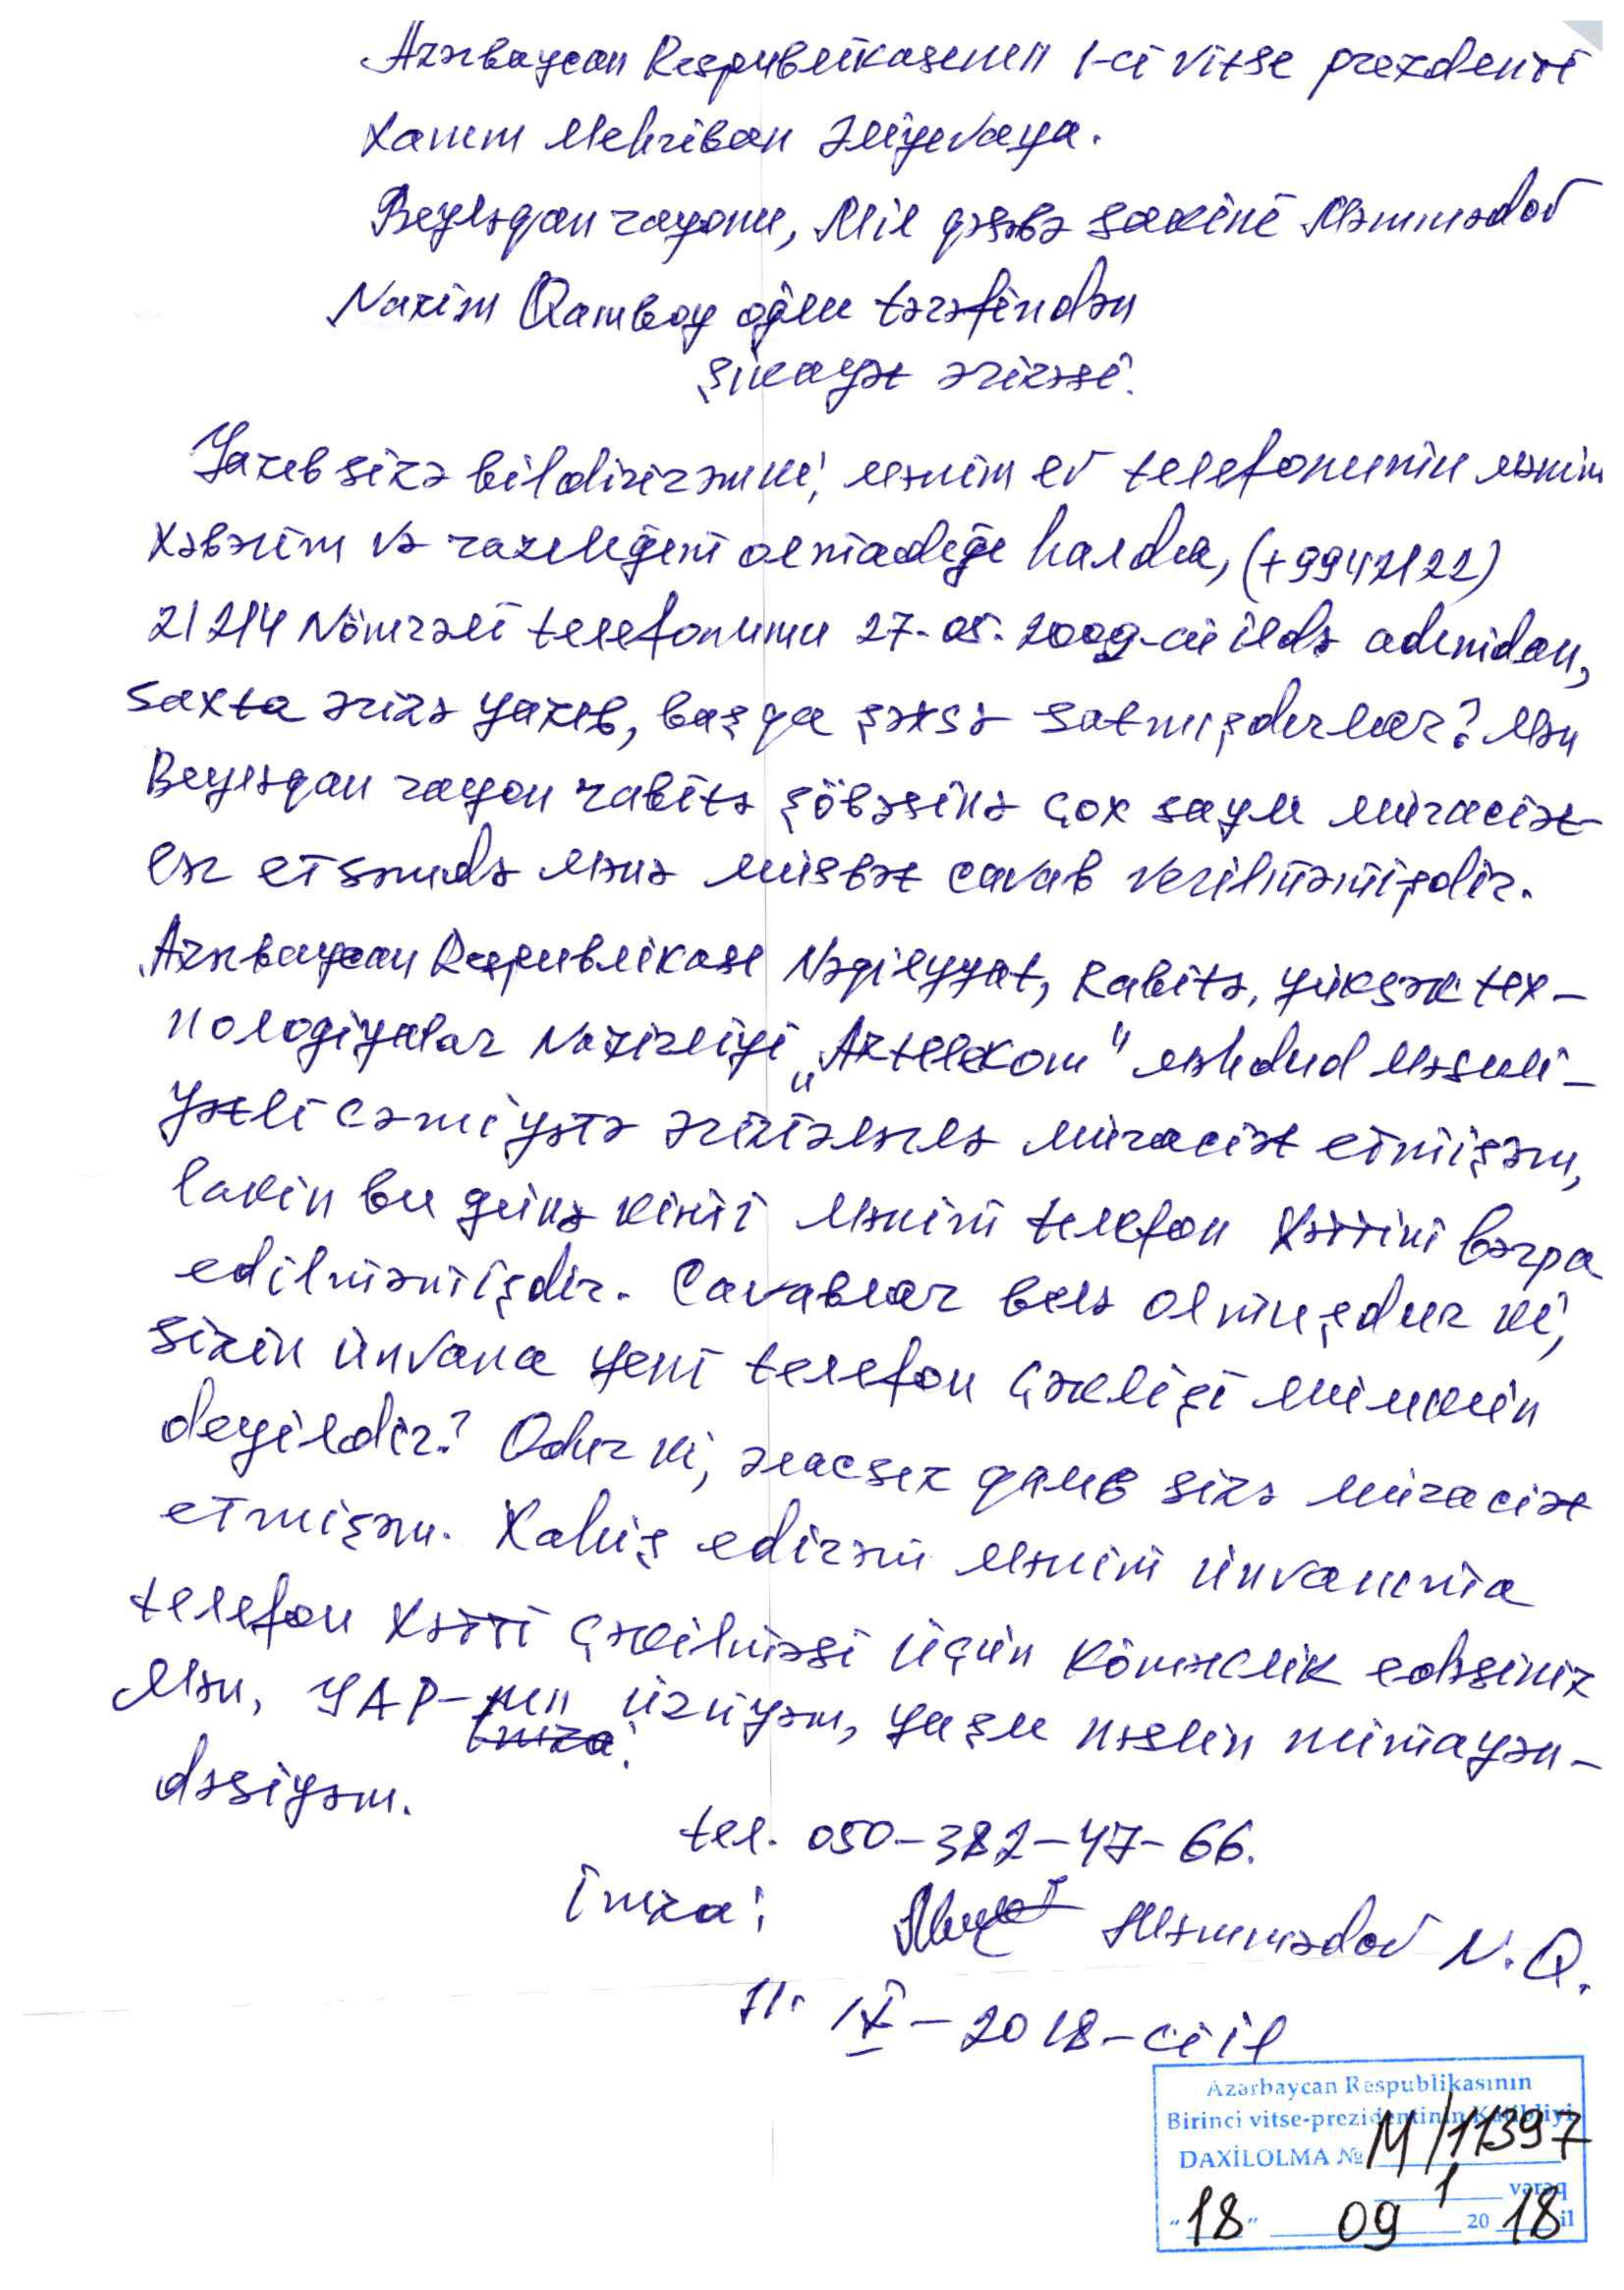 Azərbaycan Respublikasının 1-ci vitse prezdenti
Xanım Mehriban Əliyevaya.
Beyləqan rayonu, Mil qəsəbə sakini Məmmədov
Nazim Qamboy oğlu tərəfindən
şikayət ərizəsi.
Yazıb sizə bildirirəmki, mənim ev telefonumin mənim
xəbərim və razılığım olmadığı halda, (+9942122)
21214 Nömrəli telefonumu 27-05-2009-cu ildə adımdan,
saxta ərizə yazıb, başqa şəxsə satmışdırlar? Mən
Beyləqan rayon rabitə şöbəsinə çox saylı müraciət-
lər etsəmdə mənə müsbət cavab verilməmişdir.
Azərbaycan Respublikası Nəqilyyat, Rabitə, yüksək tex-
nologiyalar Nazirliyi „Aztelekom" məhdud məsuli-
yətli cəmiyətə ərizələrlə müraciət etmişəm,
lakin bu günə kimi mənim telefon xəttimi bərpa
edilməmişdir. Cavablar belə olmuşdur ki,
sizin ünvana yeni telefon çəkilişi mümkün
deyildir? Odur ki, əlacsız qalıb sizə müraciət
etmişəm. Xahiş edirəm mənim ünvanıma
telefon xətti çəkilməsi üçün köməklik edəsiniz
Mən, YAP-nın üzvüyəm, yaşlı nəslin nümayən-
İmza:
dəsiyəm.
tel. 050-382-47-66.
İmza: Məmmədov N.Q.
11. IX-2018-ci il
Azərbaycan Respublikasının
Birinci vitse-prezidentinin Katibliyi
DAXİLOLMA № M/11397
1 vərəq
"18" 09 2018 il